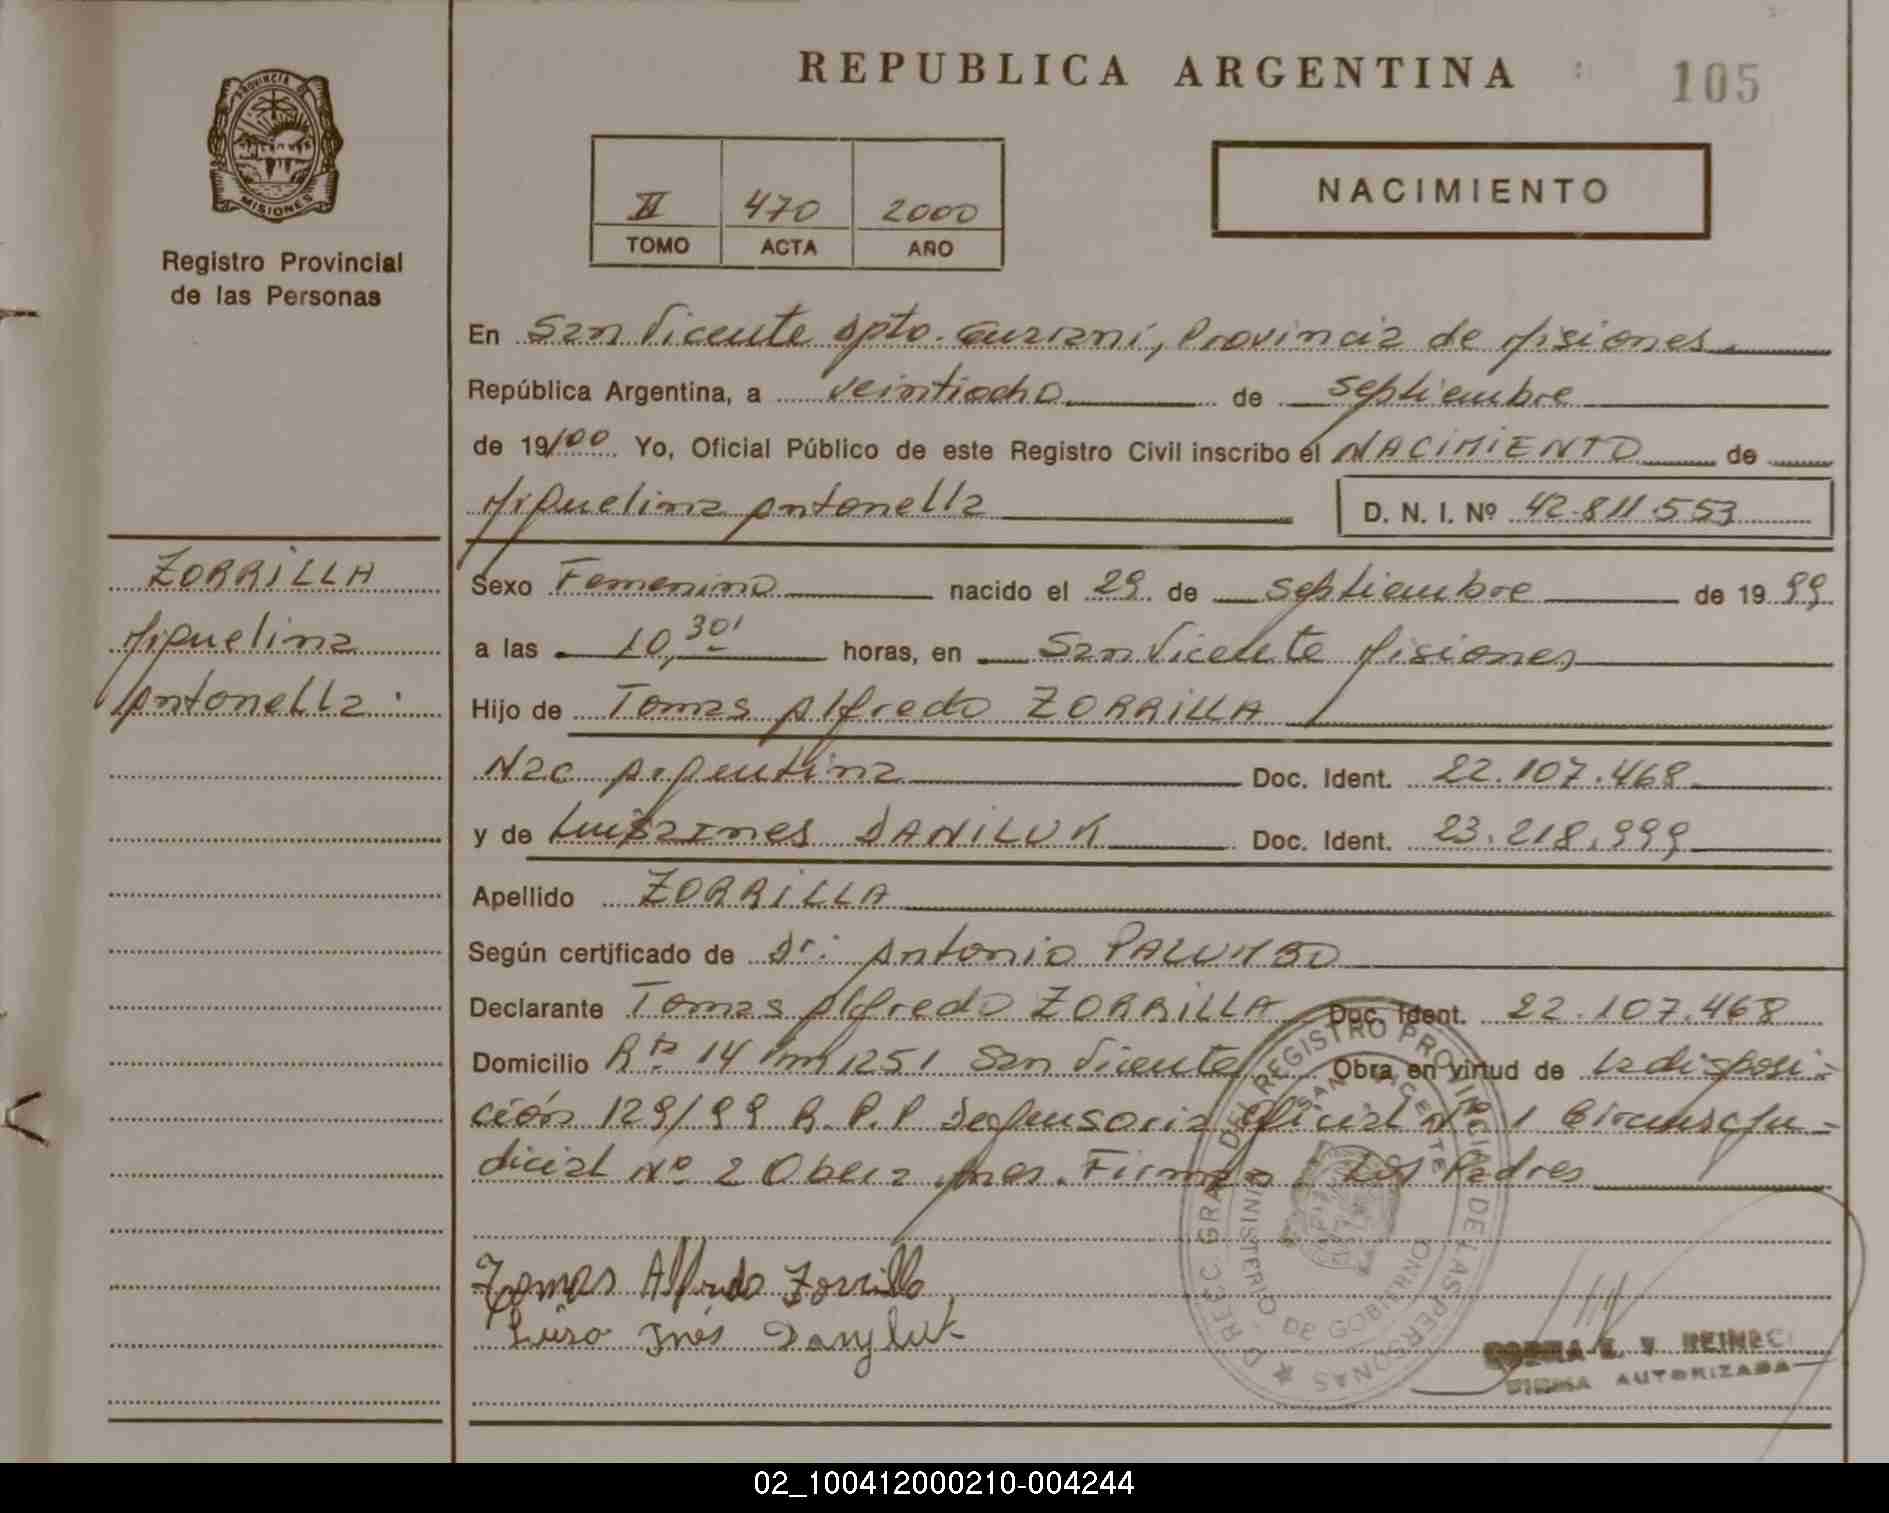 REPUBLICA ARGENTINA
105
PROVINCIA DE
MISIONES
Registro Provincial
de las Personas
II 470 2000
TOMO ACTA AÑO
NACIMIENTO
En San Vicente Dpto. Guarani, Provincia de Misiones.
República Argentina, a veintiocho de septiembre
de 19/00 Yo, Oficial Público de este Registro Civil inscribo el NACIMIENTO de
Miquelina Antonella
D. N. I. Nº 42.811.553
ZORRILLA
Miquelina
Antonella.
Sexo Femenino nacido el 29 de septiembre de 19 99
a las 10,30' horas, en San Vicente Misiones
Hijo de Tomas Alfredo ZORRILLA
Nac Argentina Doc. Ident. 22.107.468
y de Luisa Ines DANILUK Doc. Ident. 23.218.999
Apellido ZORRILLA
Según certificado de Dr. Antonio PALUMBO
Declarante Tomas Alfredo ZORRILLA Doc. Ident. 22.107.468
Domicilio Rta. 14 Km 1251 San Vicente Obra en virtud de la disposi-
ción 129/99 R.P.P Defensoria Oficial Nº 1 Circunsc Ju-
dicial Nº 2 Obera Mnes. Firman: Los Padres
Tomas Alfredo Zorrilla
Luisa Inés Danyluk
DEL REGISTRO PROVINCIAL DE LAS PERSONAS
SAN VICENTE
MINISTERIO DE GOBIERNO
FIRMA AUTORIZADA
02_100412000210-004244